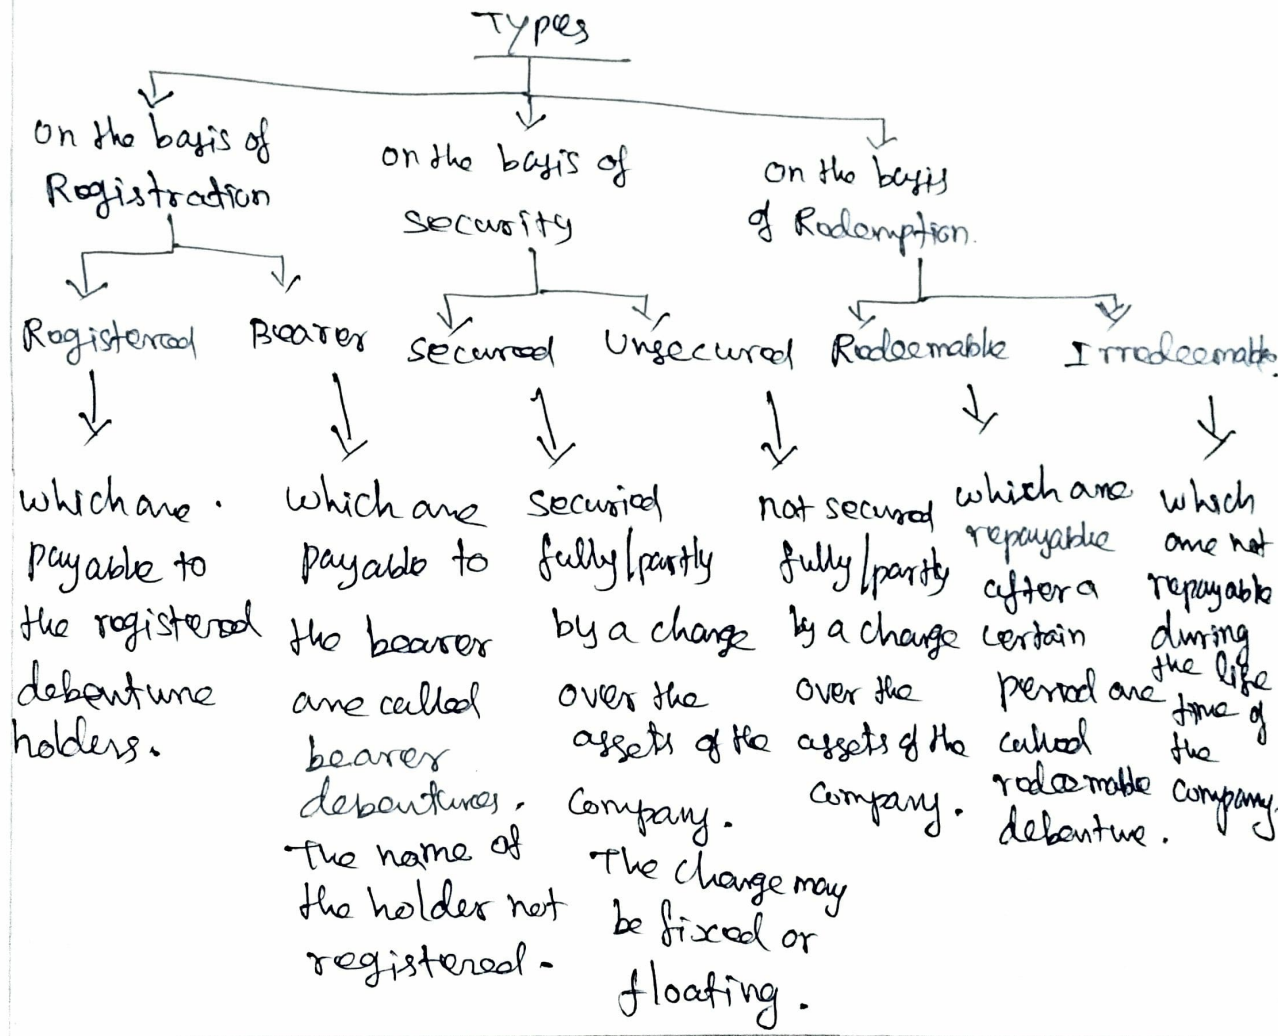 Types
on the basis of
Registration
on the basis of
security
on the basis
of Redemption.
Registered
Bearer
secured
Unsecured
Redeemable
Irredeemable.
which are.
payable to
the registered
debenture
holders.
which are
payable to
the bearer
are called
bearer
debentures.
The name of
the holder not
registered-
securied
fully/partly
by a charge
over the
assets of the
company.
The charge may
be fixed or
floating.
not secured
fully/partly
by a charge
over the
assets of the
company.
which are
repayable
after a
certain
period are
called
redeemable
debenture.
which
are not
repayable
during
the life
time of
the
company.